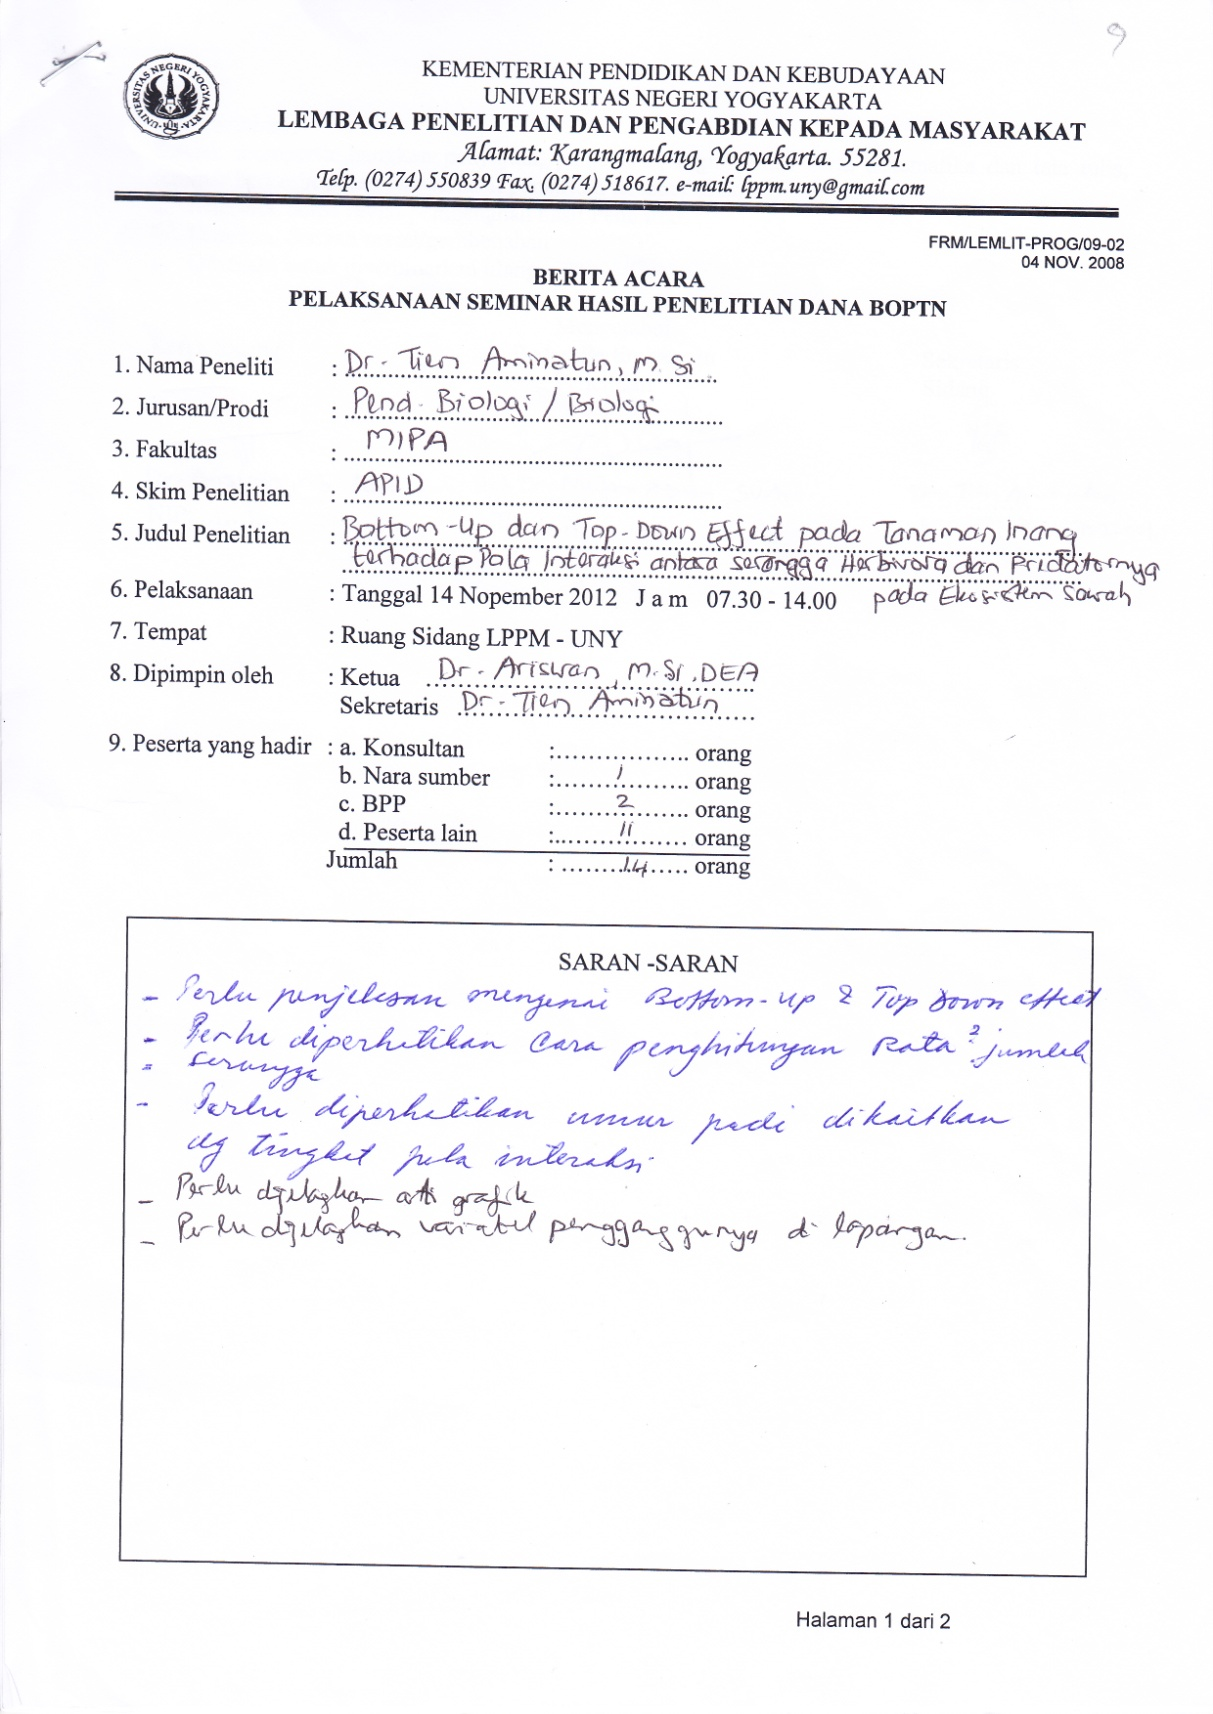 9
UNIVERSITAS NEGERI YOGYAKARTA
KEMENTERIAN PENDIDIKAN DAN KEBUDAYAAN
UNIVERSITAS NEGERI YOGYAKARTA
LEMBAGA PENELITIAN DAN PENGABDIAN KEPADA MASYARAKAT
Alamat: Karangmalang, Yogyakarta. 55281.
Telp. (0274) 550839 Fax. (0274) 518617. e-mail: lppm.uny@gmail.com
FRM/LEMLIT-PROG/09-02
04 NOV. 2008
BERITA ACARA
PELAKSANAAN SEMINAR HASIL PENELITIAN DANA BOPTN
1. Nama Peneliti : Dr. Tien Aminatun, M.Si
2. Jurusan/Prodi : Pend. Biologi / Biologi
3. Fakultas : MIPA
4. Skim Penelitian : APID
5. Judul Penelitian : Bottom-Up dan Top-Down Effect pada Tanaman Inang
terhadap Pola Interaksi antara serangga Herbivora dan Pridatornya
6. Pelaksanaan : Tanggal 14 Nopember 2012 Jam 07.30 - 14.00 pada Ekosistem Sawah
7. Tempat : Ruang Sidang LPPM - UNY
8. Dipimpin oleh : Ketua Dr. Ariswan, M.Si, DEA
Sekretaris Dr. Tien Aminatun
9. Peserta yang hadir : a. Konsultan : ................. orang
b. Nara sumber : 1 orang
c. BPP : 2 orang
d. Peserta lain : 11 orang
Jumlah : 14 orang
SARAN -SARAN
- Perlu penjelasan mengenai Bottom-Up & Top Down effect
- Perlu diperhatikan cara penghitungan Rata² jumlah
= serangga
- Perlu diperhatikan umur padi dikaitkan
dg tingkat pola interaksi
- Perlu dijelaskan arti grafik
- Perlu dijelaskan variabel pengganggunya di lapangan.
Halaman 1 dari 2